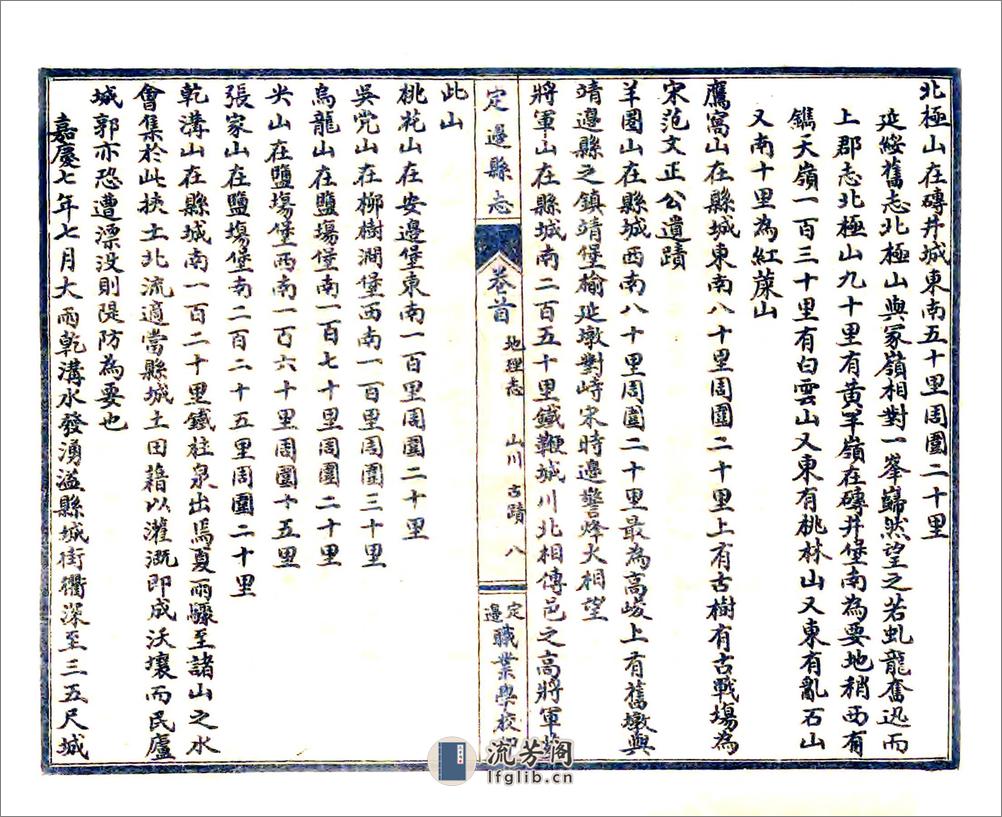 北極山在磚井城東南五十里周圍二十里
延綏舊志北極山與冢嶺相對一峯巋然望之若虬龍奮迅而
上郡志北極山九十里有黃羊嶺在磚井堡南為要地稍西有
鐫大嶺一百三十里有白雲山又東有桃林山又東有亂石山
又南十里為紅藁山
鷹窩山在縣城東南八十里周圍二十里上有古樹有古戰塲為
宋范文正公遺蹟
羊圈山在縣城西南八十里周圍二十里最為高峻上有舊墩與
靖邊縣之鎮靖堡榆延墩對峙宋時邊警烽火相望
將軍山在縣城南二百五十里鐵鞭城川北相傳邑之高將軍
定邊縣志
卷首
地理志 山川 古蹟 八
定邊職業學校印
此山
桃花山在安邊堡東南一百里周圍二十里
吳党山在柳樹澗堡西南一百里周圍三十里
烏龍山在鹽塲堡南一百七十里周圍二十里
尖山在鹽塲堡西南一百六十里周圍十五里
張家山在鹽塲堡南二百二十五里周圍二十里
乾溝山在縣城南一百二十里鐵柱泉出焉夏雨驟至諸山之水
會集於此挾土北流適當縣城土田藉以灌溉即成沃壤而民廬
城郭亦恐遭漂没則隄防為要也
嘉慶七年七月大雨乾溝水發湧溢縣城街衢深至三五尺城
流芳阁
lfglib.cn